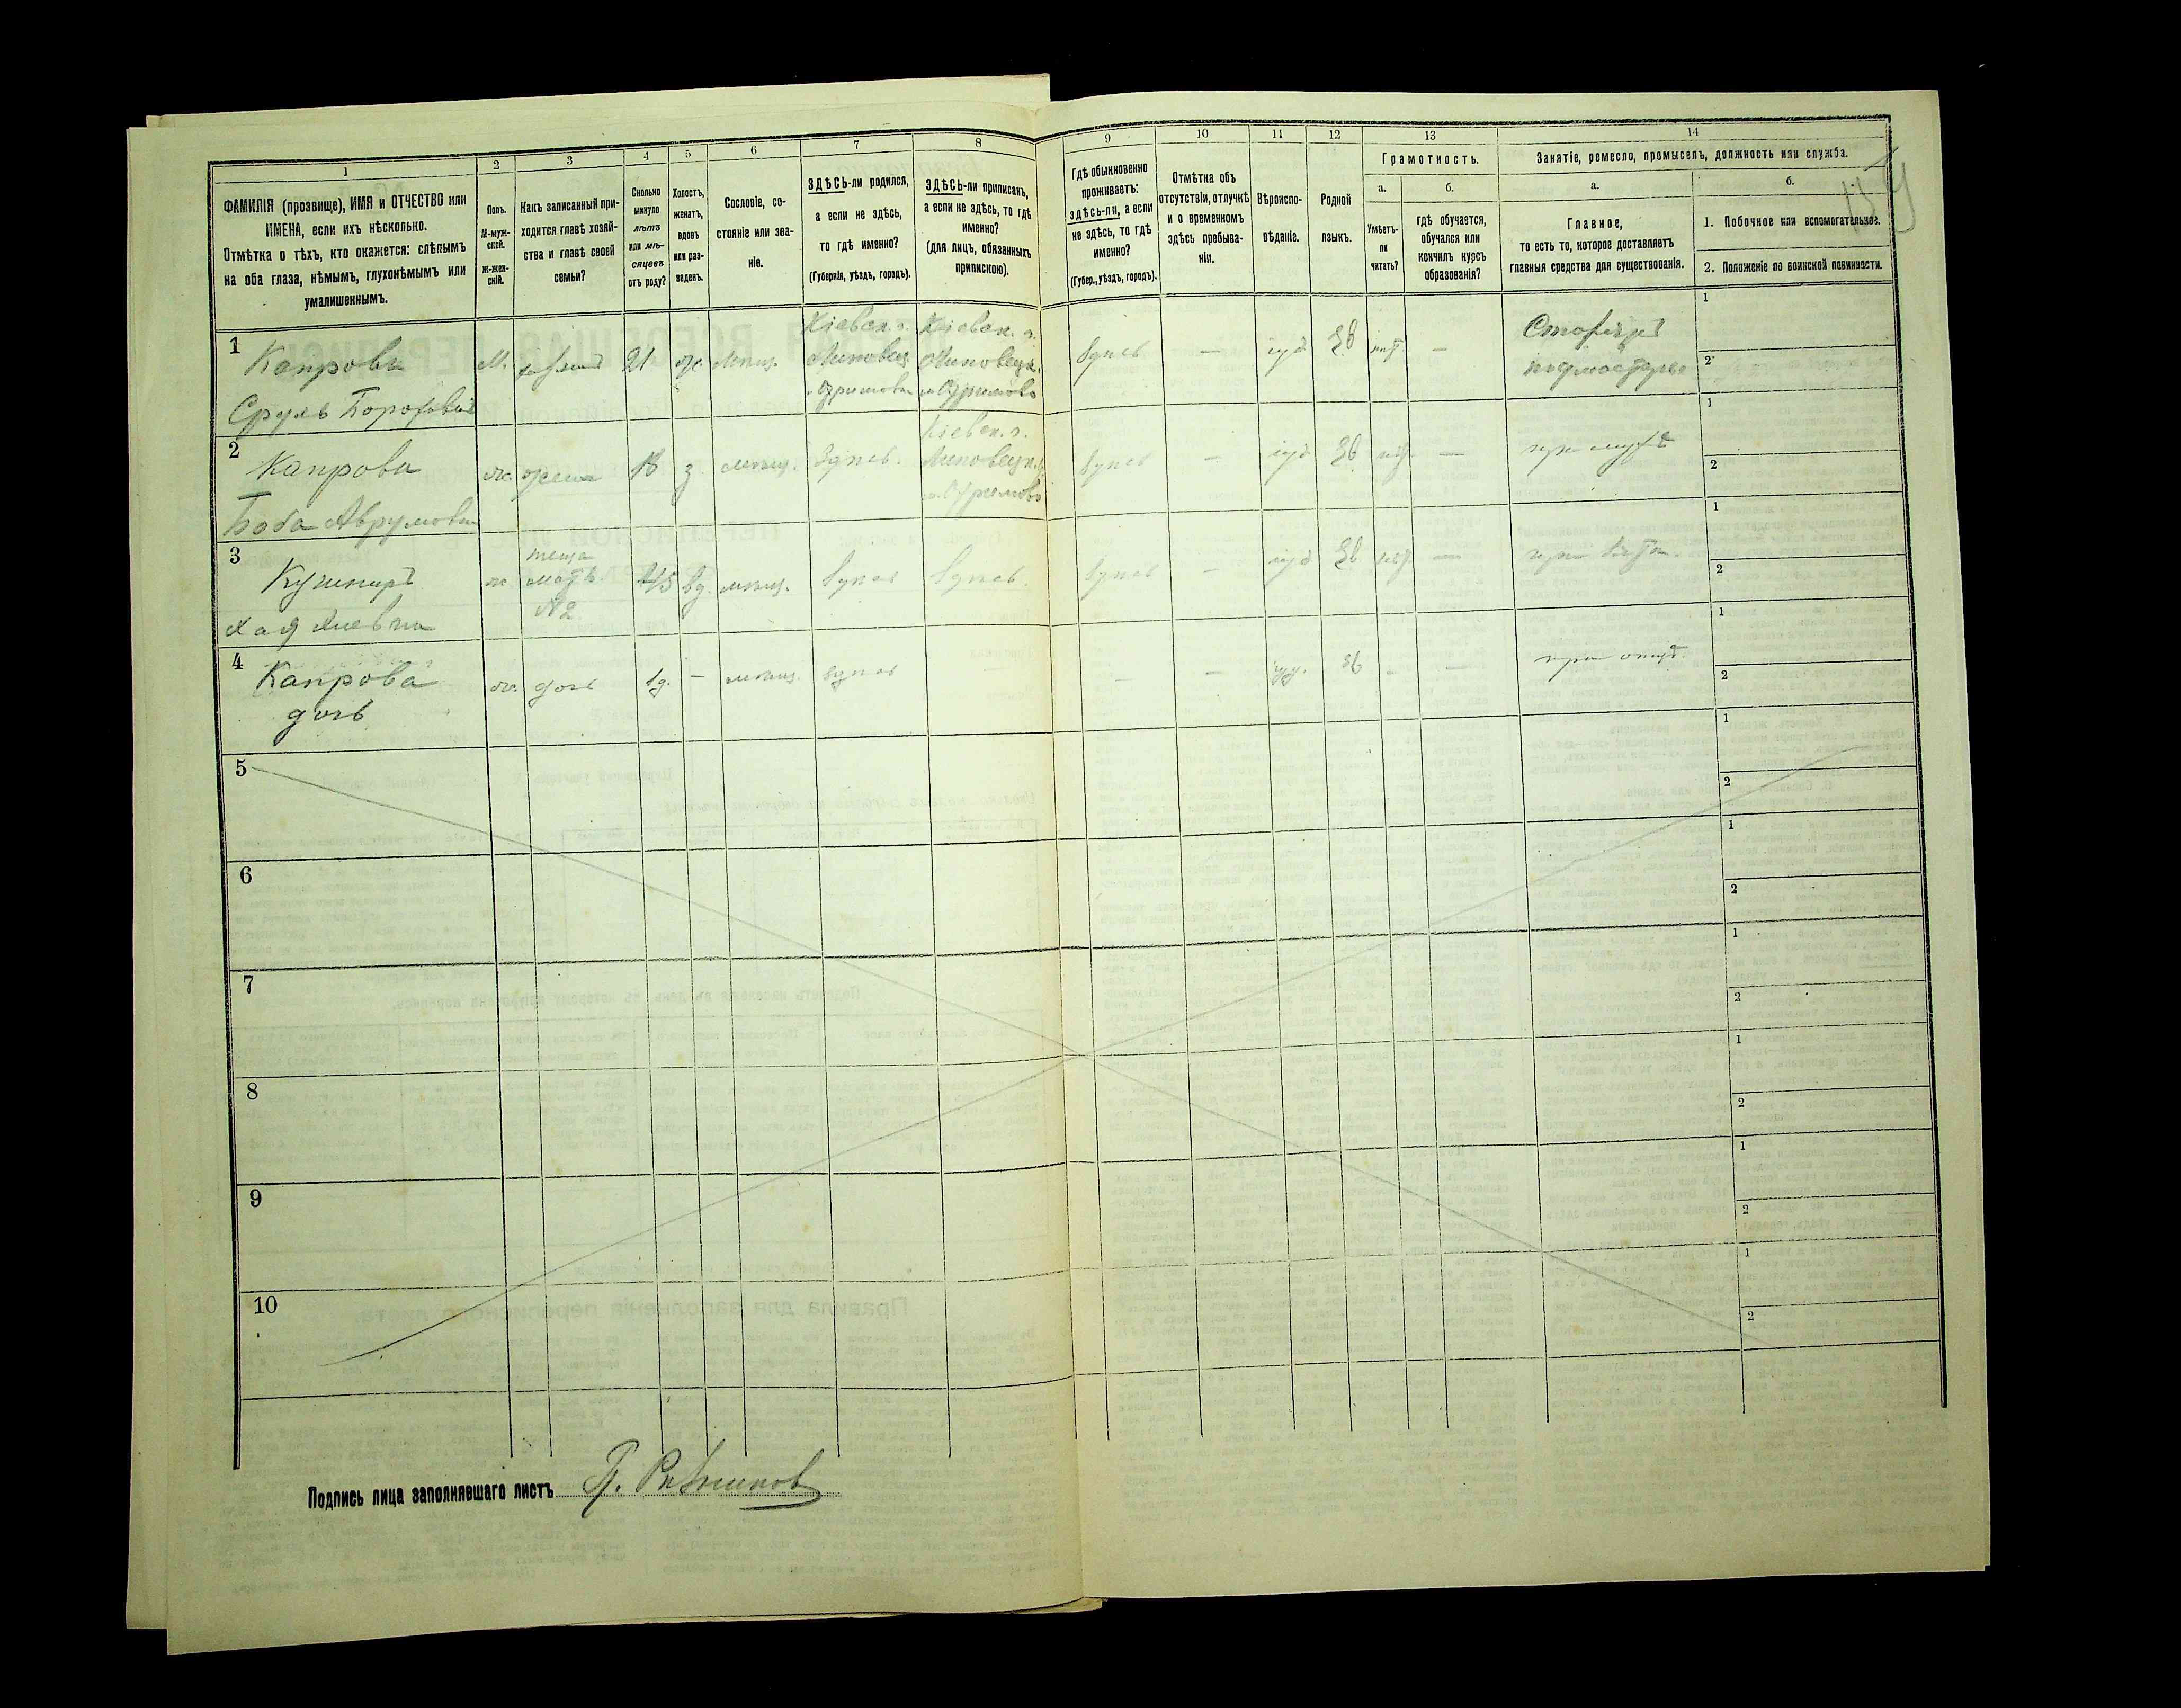 1
2
3
4
5
6
7
8
9
10
11
12
13
14
ФАМИЛІЯ (прозвище), ИМЯ и ОТЧЕСТВО или
ИМЕНА, если ихъ нѣсколько.
Отмѣтка о тѣхъ, кто окажется: слѣпымъ
на оба глаза, нѣмымъ, глухонѣмымъ или
умалишеннымъ.
Полъ.
М-муж-
ской.
Ж-жен-
скій.
Какъ записанный при-
ходится главѣ хозяй-
ства и главѣ своей
семьи?
Сколько
минуло
лѣтъ
или мѣ-
сяцевъ
отъ роду?
Холостъ,
женатъ,
вдовъ
или раз-
веденъ.
Сословіе, со-
стояніе или зва-
ніе.
ЗДѢСЬ-ли родился,
а если не здѣсь,
то гдѣ именно?
(Губернія, уѣздъ, городъ).
ЗДѢСЬ-ли приписанъ,
а если не здѣсь, то гдѣ
именно?
(для лицъ, обязанныхъ
припискою).
Гдѣ обыкновенно
проживаетъ:
здѣсь-ли, а если
не здѣсь, то гдѣ
именно?
(Губер., уѣздъ, городъ).
Отмѣтка объ
отсутствіи, отлучкѣ
и о временномъ
здѣсь пребыва-
ніи.
Вѣроиспо-
вѣданіе.
Родной
языкъ.
Грамотность.
а.
Умѣетъ-
ли
читать?
б.
гдѣ обучается,
обучался или
кончилъ курсъ
образованія?
Занятіе, ремесло, промыселъ, должность или служба.
а.
Главное,
то есть то, которое доставляетъ
главныя средства для существованія.
б.
1. Побочное или вспомогательное.
2. Положеніе по воинской повинности.
1
Сруль
М. 21 ж. мѣщ.
Кіевск. г.
Липовец.
Кіевск. г.
Липовецк.
здѣсь — іуд Ев —
Столяръ
подмастерье
1
2
2
Капрова
Аврумовна
ж. жена 18 з. мѣщ. здѣсь.
Кіевск. г.
Липовецк.
здѣсь — іуд Ев —
при мужѣ
1
2
3
Кушниръ
Хая
ж.
теща
мать
№ 2
45 вд. мѣщ. здѣсь здѣсь
здѣсь — іуд Ев —
при
1
2
4
Капрова
дочь
ж. дочь 1д. — мѣщ. здѣсь —
— — іуд. Ев — —
при
1
2
5
1
2
6
1
2
7
1
2
8
1
2
9
1
2
10
1
2
Подпись лица заполнявшаго листъ